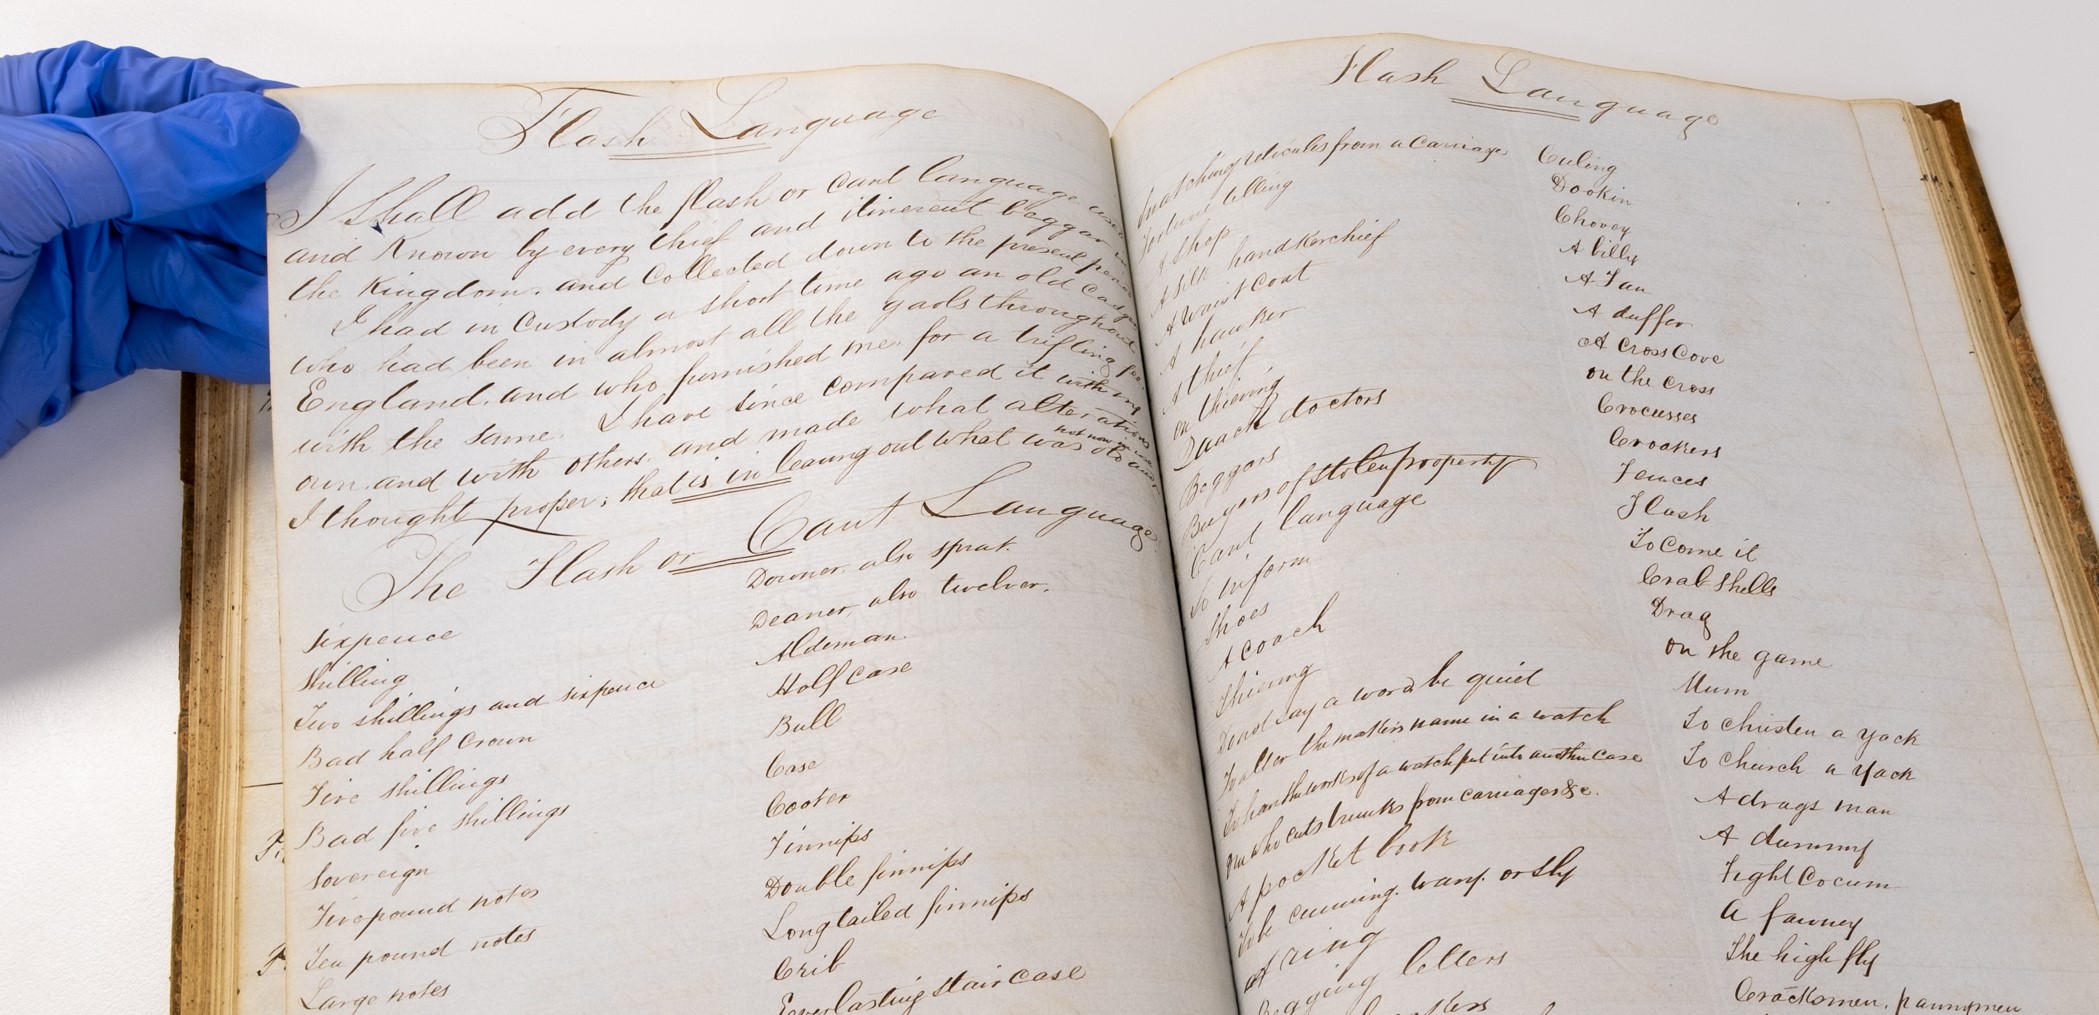 Flash Language
I shall add the flash or cant language used
and known by every thief and itinerent beggar in
the Kingdom, and Collected down to the present period
I had in Custody a short time ago an old Cadger
who had been in almost all the gaols throughout
England, and who furnished me, for a trifling fee,
with the same. I have since compared it with my
own, and with others, and made what alterations
not now in use
I thought proper; that is in leaving out what was old and
The Flash or Cant Language
Sixpence Downer, also sprat.
Shilling Deaner, also twelver.
Two shillings and sixpence Aldeman
Bad half Crown Half Case
Five shillings Bull
Bad five shillings Case
Sovereign Cooter
Five pound notes Finnips
Ten pound notes Double finnips
Large notes Long tailed finnips
Crib
Everlasting staircase
Flash Language
Snatching reticules from a Carriage Culing
Fortune telling Dookin
A Shop Chovey
A Silk handkerchief A billy
A Waist Coat A Fan
A hawker A duffer
A thief A Cross Cove
on thieving on the cross
Quack doctors Crocusses
Beggars Croakers
Buyers of stolen property Fences
Cant language Flash
To inform To Come it
Shoes Crab Shells
A Coach Drag
Thieving on the game
Donot say a word be quiet Mum
To alter the makers name in a watch To christen a yack
To have the works of a watch put into another case To church a yack
One who cuts trunks from carriages &c. A drags man
A pocket book A dummy
To be cunning, wary, or sly Fight Cocum
A ring A fawney
Begging letters The high fly
Cracksmen, pannymen